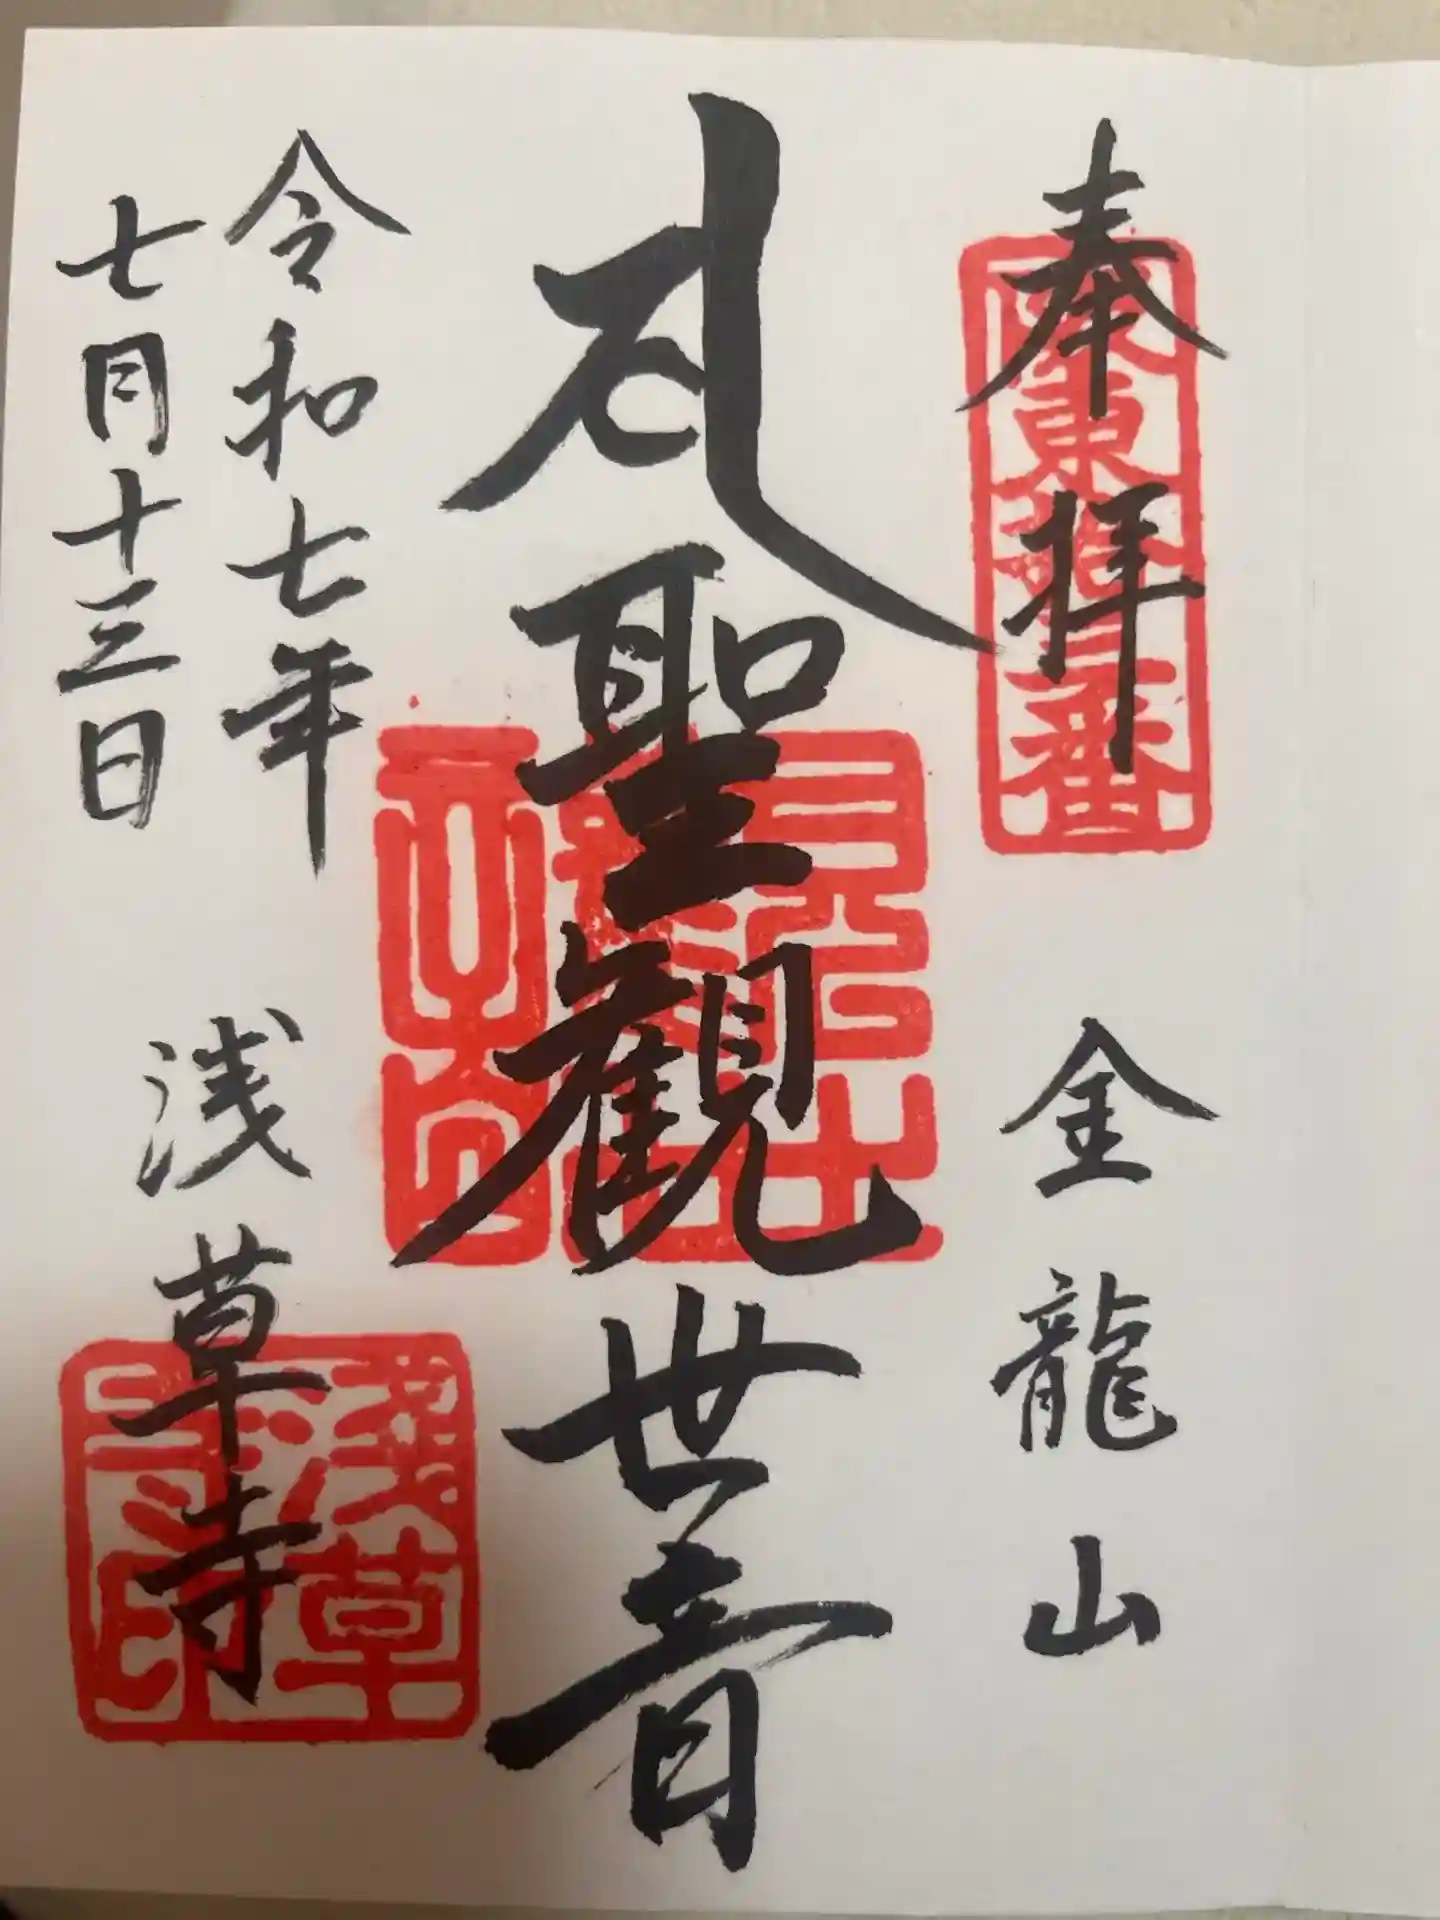 奉拝
坂東拾三番
金龍山
聖観世音
令和七年
七月十三日
浅草寺
浅草寺印